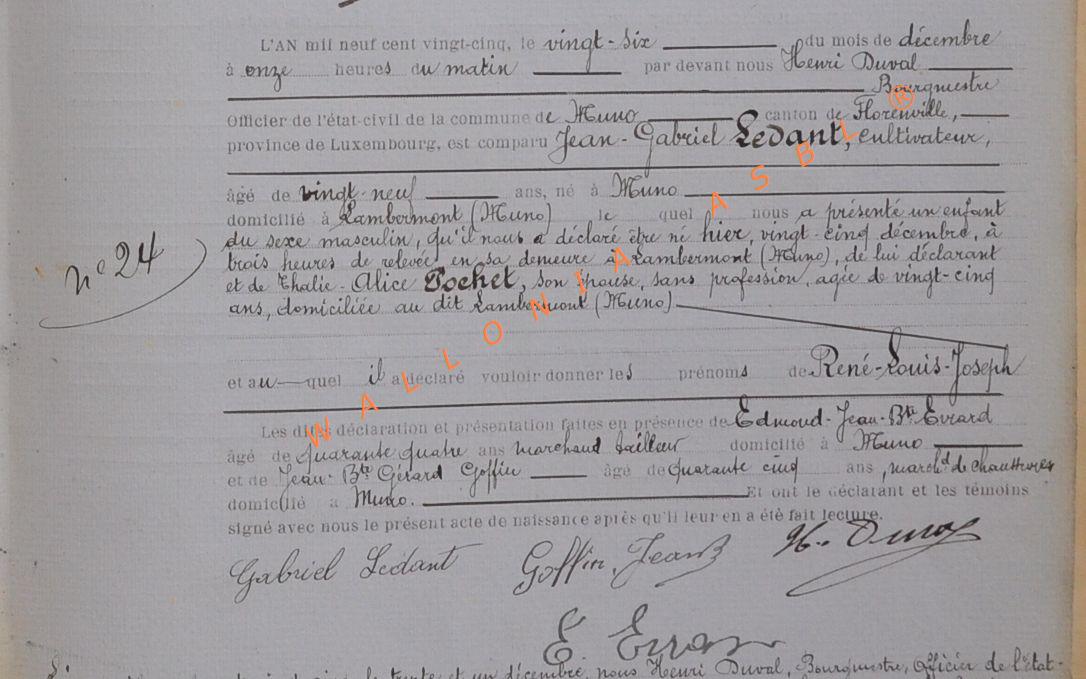 L'AN mil neuf cent vingt-cinq, le vingt-six du mois de décembre
à onze heures du matin par devant nous Henri Duval
Bourgmestre
Officier de l'état-civil de la commune de Muno canton de Florenville,
province de Luxembourg, est comparu Jean-Gabriel Ledant, cultivateur,
âgé de vingt-neuf ans, né à Muno
domicilié à Lambermont (Muno) le quel nous a présenté un enfant
du sexe masculin, qu'il nous a déclaré être né hier, vingt-cinq décembre, à
nº 24
trois heures de relevée en sa demeure à Lambermont (Muno), de lui déclarant
et de Thalie-Alice Pochet, son épouse, sans profession, agée de vingt-cinq
ans, domiciliée au dit Lambermont (Muno)
et au quel il a déclaré vouloir donner les prénoms de René-Louis-Joseph
Les dites déclaration et présentation faites en présence de Edmond-Jean-Bte Evrard
âgé de quarante quatre ans marchand tailleur domicilié à Muno
et de Jean-Bte Gérard Goffin âgé de quarante cinq ans, marchd de chaussures
domicilié à Muno. Et ont le déclarant et les témoins
signé avec nous le présent acte de naissance après qu'il leur en a été fait lecture.
Gabriel Ledant Goffin, Jean B H. Duval
E. Evrard
WALLONIA ASBL ®
trente et un décembre, nous Henri Duval, Bourgmestre, Officier de l'état-